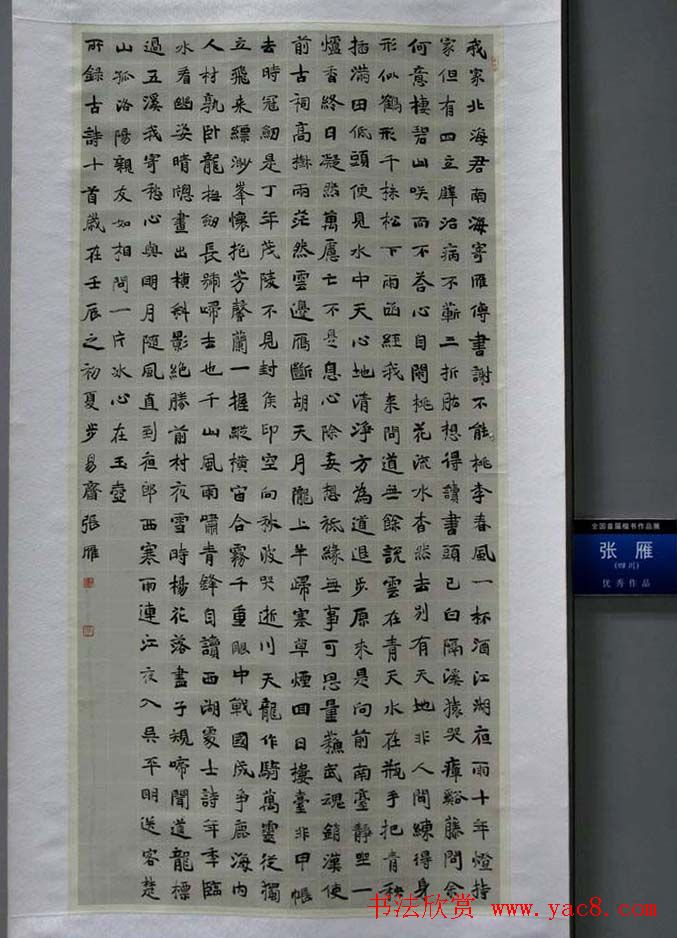 我家北海君南海寄雁傳書謝不能桃李春風一杯酒江湖夜雨十年燈持
家但有四立壁治病不蘄三折肱想得讀書頭已白隔溪猿哭瘴谿藤問余
何意棲碧山咲而不荅心自閑桃花流水杳然去別有天地非人間練得身
形似鶴形千株松下兩函經我来問道無餘說雲在青天水在瓶手把青秧
插滿田低頭便見水中天心地清淨方為道退步原来是向前南臺靜坐一
爐香終日凝然萬慮亡不是息心除妄想祗緣無事可思量蘇武魂銷漢使
前古祠高樹兩茫然雲邊鴈斷胡天月隴上羊歸塞草煙回日樓臺非甲帳
去時冠劒是丁年茂陵不見封侯印空向秋波哭逝川天龍作騎萬靈從獨
立飛来縹渺峯懷抱芳馨蘭一握縱橫宙合霧千重眼中戰國成爭鹿海内
人材孰卧龍撫劒長號歸去也千山風雨嘯青鋒自讀西湖處士詩年年臨
水看幽姿晴牕畫出橫斜影絶勝前村夜雪時楊花落盡子規啼聞道龍標
過五溪我寄愁心與明月隨風直到夜郎西寒雨連江夜入吳平明送客楚
山孤洛陽親友如相問一片冰心在玉壺
所録古詩十首歲在壬辰之初夏步易齋張雁
全国首届楷书作品展
张 雁
(四川)
优秀作品
书法欣赏 www.yac8.com